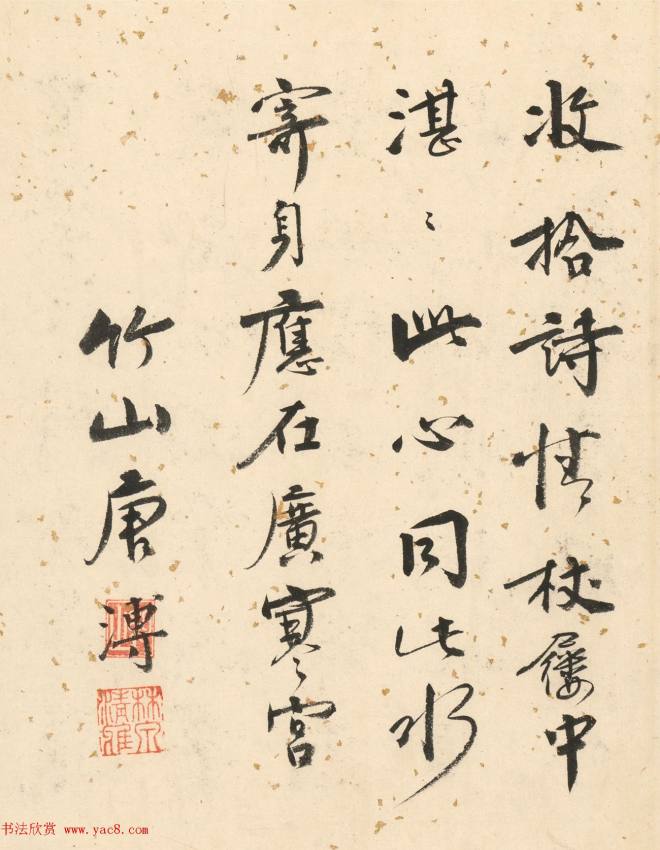 收拾詩情杖屨中
湛〻此心同此水
寄身應在廣寒宮
竹山唐溥
书法欣赏 www.yac8.com